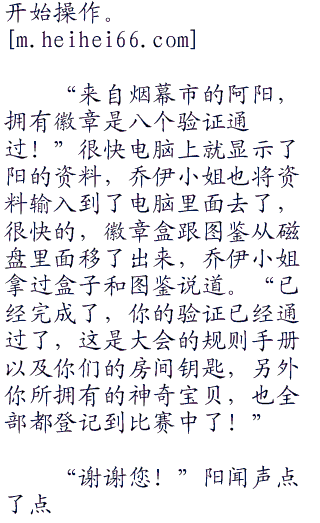 开始操作。
[m.heihei66.com]
“来自烟幕市的阿阳，
拥有徽章是八个验证通
过！”很快电脑上就显示了
阳的资料，乔伊小姐也将资
料输入到了电脑里面去了，
很快的，徽章盒跟图鉴从磁
盘里面移了出来，乔伊小姐
拿过盒子和图鉴说道。“已
经完成了，你的验证已经通
过了，这是大会的规则手册
以及你们的房间钥匙，另外
你所拥有的神奇宝贝，也全
部都登记到比赛中了！”
“谢谢您！”阳闻声点
了点